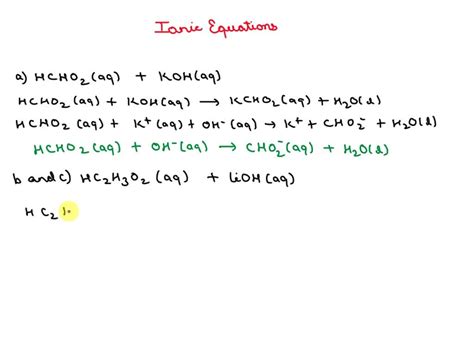 Ionic Equations
a) HCHO₂(aq) + KOH(aq)
HCHO₂(aq) + KOH(aq) → KCHO₂(aq) + H₂O(l)
HCHO₂(aq) + K⁺(aq) + OH⁻(aq) → K⁺ + CHO₂⁻ + H₂O(l)
HCHO₂(aq) + OH⁻(aq) → CHO₂⁻(aq) + H₂O(l)
b and c) HC₂H₃O₂(aq) + LiOH(aq)
HC₂